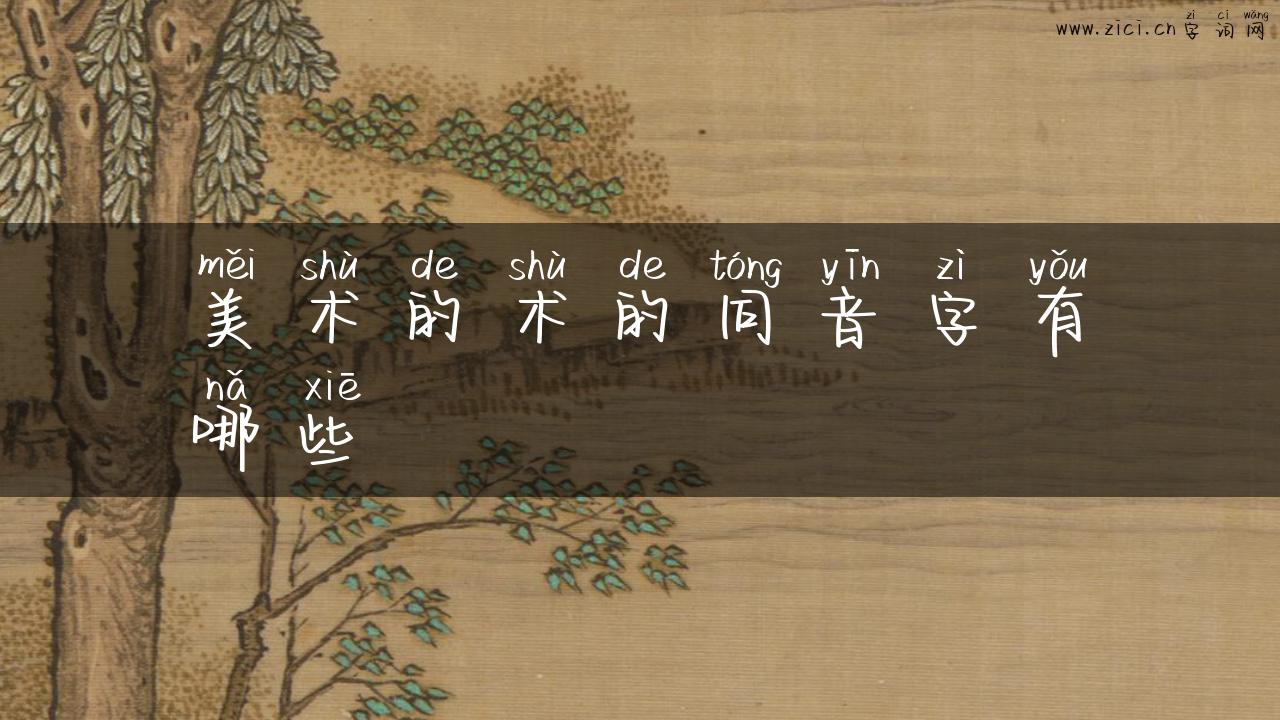 zì cí wǎng
www.zici.cn 字词网
měi shù de shù de tóng yīn zì yǒu
美术的术的同音字有
nǎ xiē
哪些